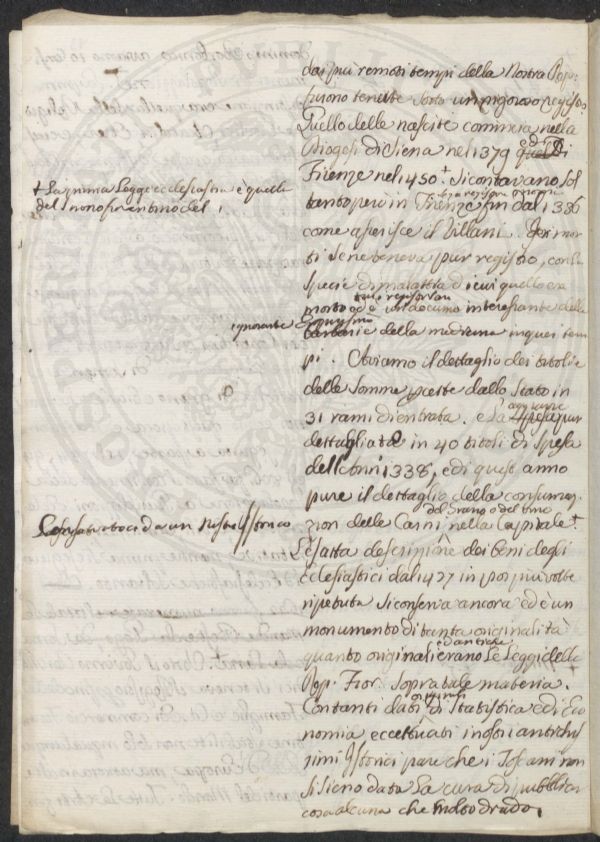 dai più remoti tempi della Nostra Rep.
furono tenute sotto un rigoroso registro.
Quello delle nascite comincia nella
Diogesi di Siena nel 1379 e di
Firenze nel 1450 + Si contavano sol
i registri
tanto però in Firenze fin dal 1336
come asserisce il Villani. Dei mor
ti se ne teneva pur registro, con la
specie di malattia di cui quello era
morto ed è un documo interessante delle
ignorante
della medicina in quei tem
pi. Abiamo il dettaglio dei titoli e
delle somme dallo Stato in
31 rami di entrata. e la spesa pur
dettagliata in 40 titoli di Spesa
dell'Ann 1338, e di quest anno
pure il dettaglio della consuma
del Grano e del Vino
zion delle Carni nella Capitale +
L'esatta descrizione dei beni degli
eclesiastici dal 1427 in poi più volte
ripetuta si conserva ancora ed è un
monumento di tanta originalità
ed antiche
quanto originali erano Le Leggi della
Rep. Fior. Sopra tale materia.
Contanti dati di Statistica e di Eco
nomia eccettuati i nostri antichis
simi Istorici pare che i Toscani non
si sieno data La cura di pubblicar
cosa alcuna che
+ La prima Legge eclesiastica è quella
del Sinono fiorentino del
da un Nostro Istorico